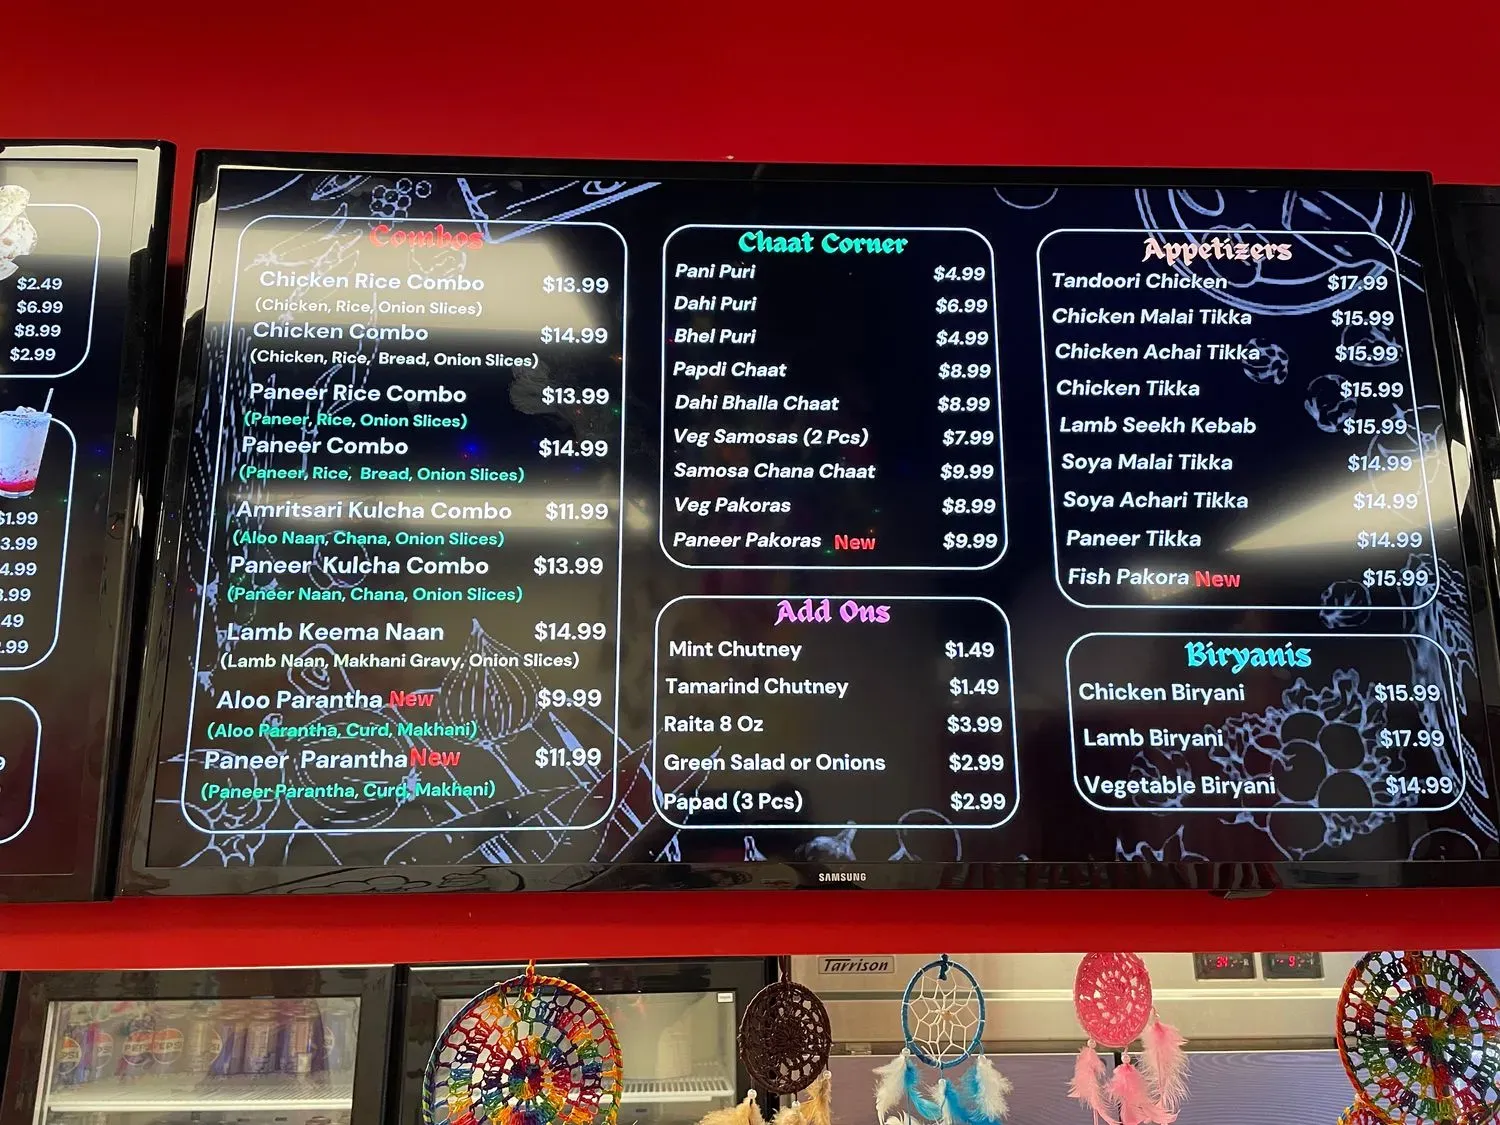 $2.49
$6.99
$8.99
$2.99
$1.99
3.99
4.99
.99
.49
.99
Combos
Chicken Rice Combo $13.99
(Chicken, Rice, Onion Slices)
Chicken Combo $14.99
(Chicken, Rice, Bread, Onion Slices)
Paneer Rice Combo $13.99
(Paneer, Rice, Onion Slices)
Paneer Combo $14.99
(Paneer, Rice, Bread, Onion Slices)
Amritsari Kulcha Combo $11.99
(Aloo Naan, Chana, Onion Slices)
Paneer Kulcha Combo $13.99
(Paneer Naan, Chana, Onion Slices)
Lamb Keema Naan $14.99
(Lamb Naan, Makhani Gravy, Onion Slices)
Aloo Parantha New $9.99
(Aloo Parantha, Curd, Makhani)
Paneer Parantha New $11.99
(Paneer Parantha, Curd, Makhani)
Chaat Corner
Pani Puri $4.99
Dahi Puri $6.99
Bhel Puri $4.99
Papdi Chaat $8.99
Dahi Bhalla Chaat $8.99
Veg Samosas (2 Pcs) $7.99
Samosa Chana Chaat $9.99
Veg Pakoras $8.99
Paneer Pakoras New $9.99
Add Ons
Mint Chutney $1.49
Tamarind Chutney $1.49
Raita 8 Oz $3.99
Green Salad or Onions $2.99
Papad (3 Pcs) $2.99
Appetizers
Tandoori Chicken $17.99
Chicken Malai Tikka $15.99
Chicken Achai Tikka $15.99
Chicken Tikka $15.99
Lamb Seekh Kebab $15.99
Soya Malai Tikka $14.99
Soya Achari Tikka $14.99
Paneer Tikka $14.99
Fish Pakora New $15.99
Biryanis
Chicken Biryani $15.99
Lamb Biryani $17.99
Vegetable Biryani $14.99
SAMSUNG
Tarrison
PEPSI